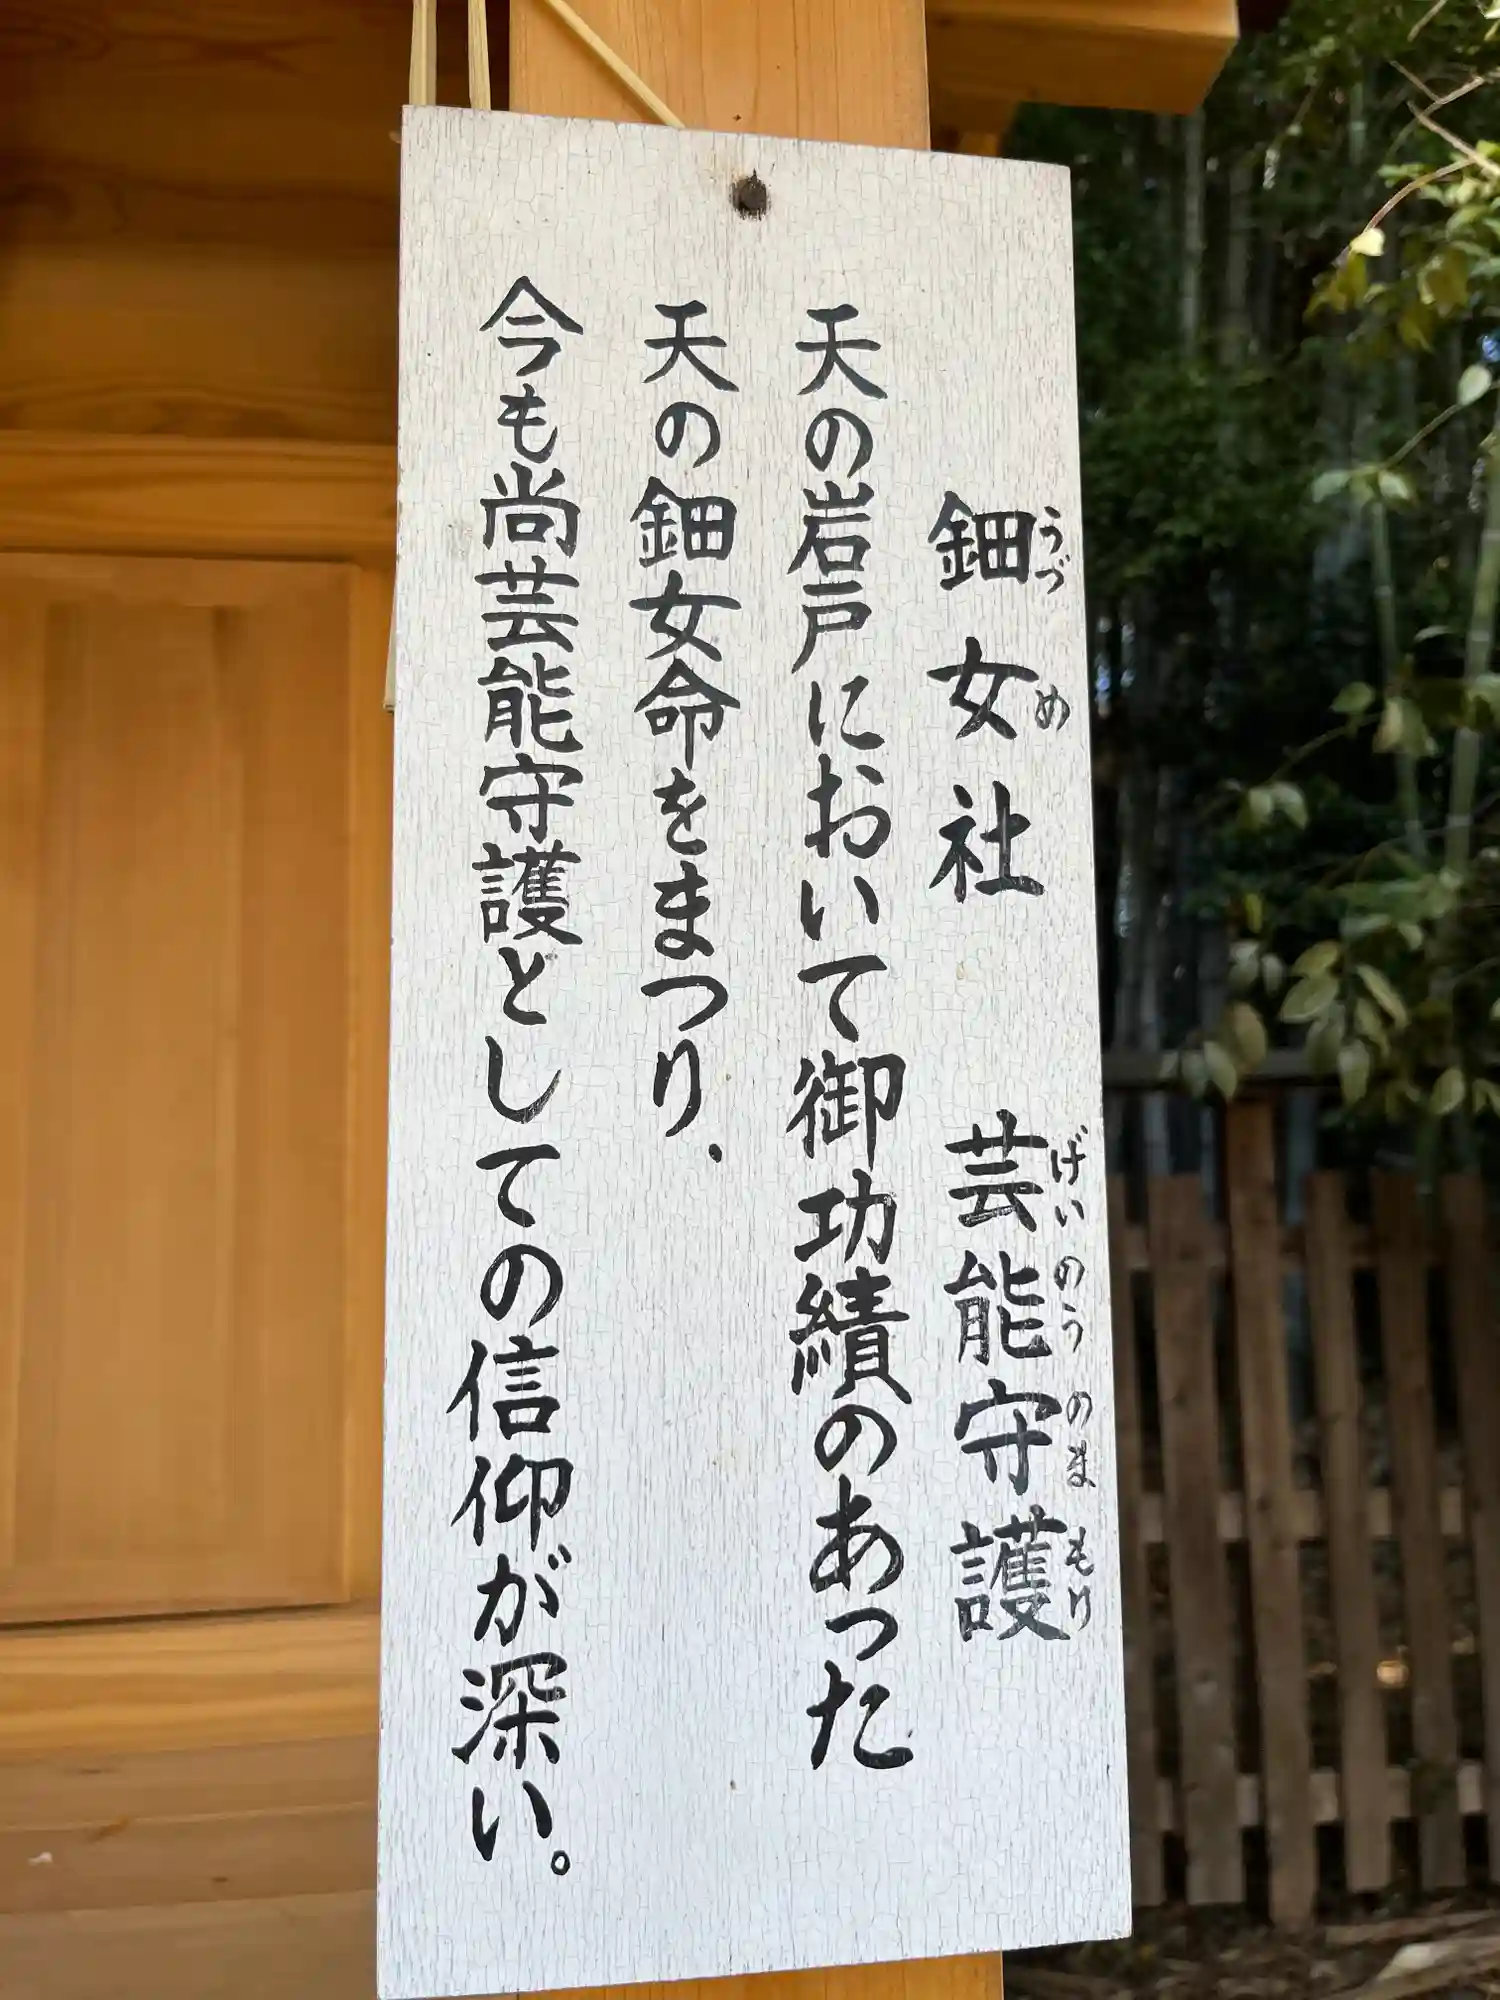 鈿女社　芸能守護
うづめ　げいのうのまもり
天の岩戸において御功績のあった
天の鈿女命をまつり.
今も尚芸能守護としての信仰が深い。